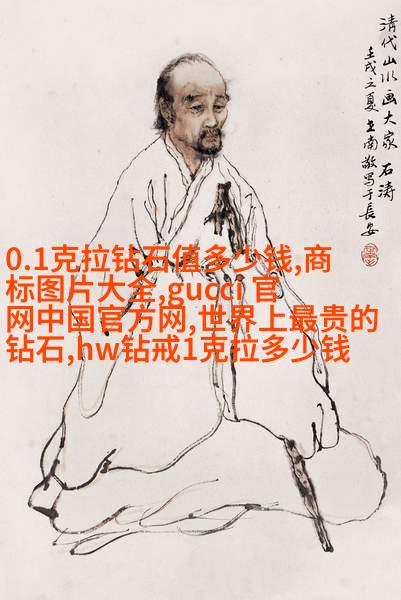 清代山水画大家 石涛
壬戌之夏 南敬写于長安
0.1克拉钻石值多少钱,商
标图片大全,gucci 官
网中国官方网,世界上最贵的
钻石,hw钻戒1克拉多少钱